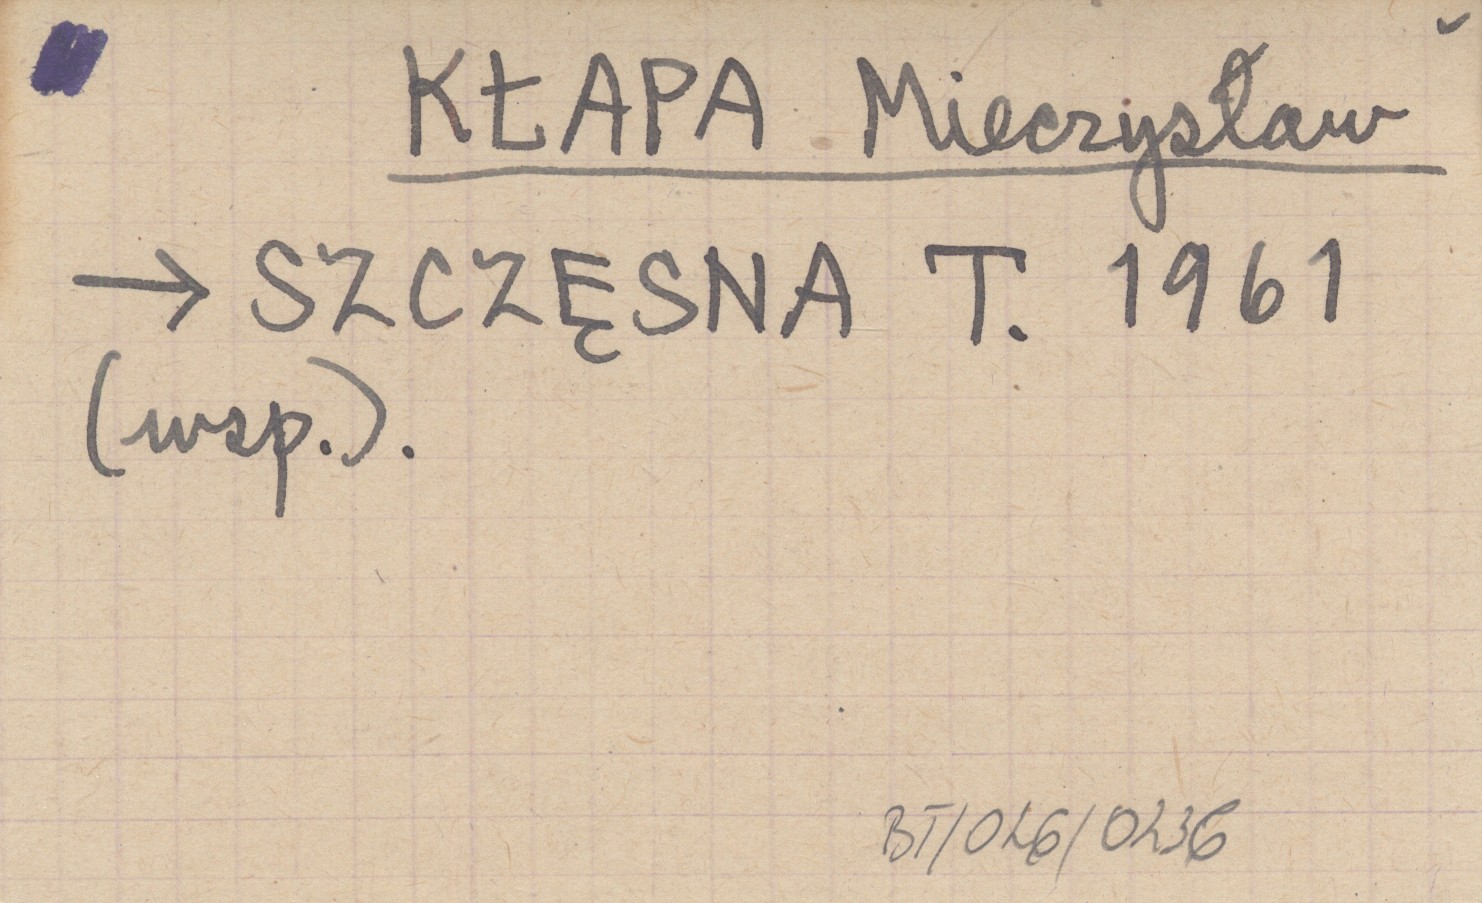 KŁAPA Mieczysław
→ SZCZĘSNA T. 1961
(wsp.).
BT/026/0236